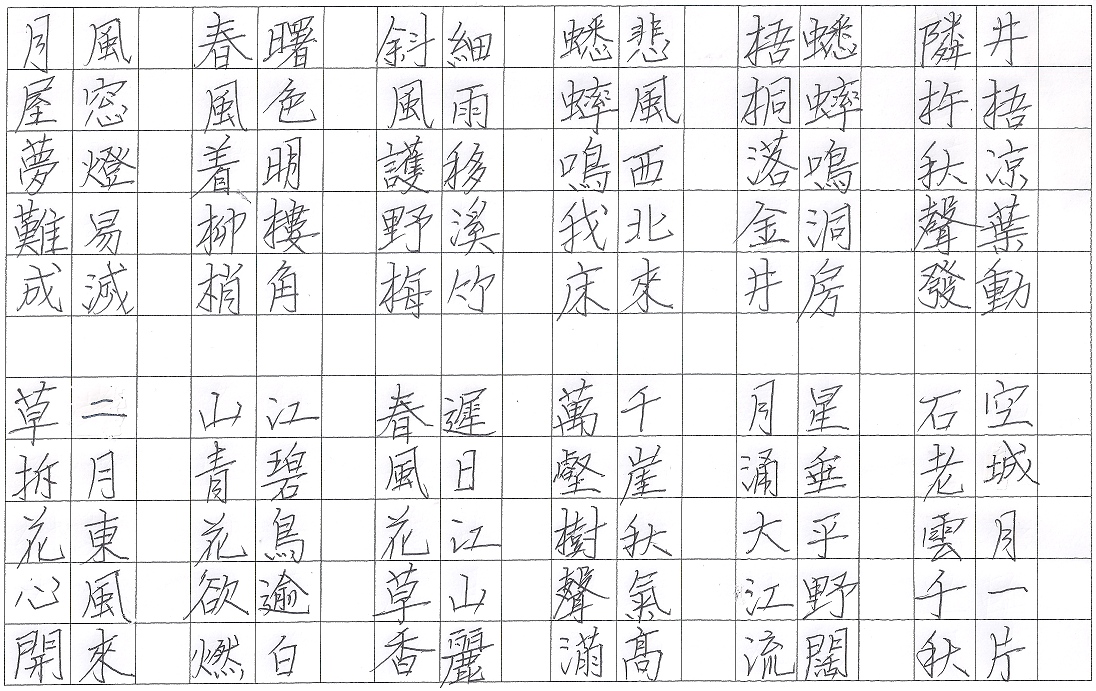 井梧凉葉動
隣杵秋聲發
蟋蟀鳴洞房
梧桐落金井
悲風西北來
蟋蟀鳴我床
細雨移溪竹
斜風護野梅
曙色明樓角
春風着柳梢
風窓燈易滅
月屋夢難成
空城月一片
石老雲千秋
星垂平野闊
月涌大江流
千崖秋氣高
萬壑樹聲滿
遲日江山麗
春風花草香
江碧鳥逾白
山青花欲燃
二月東風來
草拆花心開